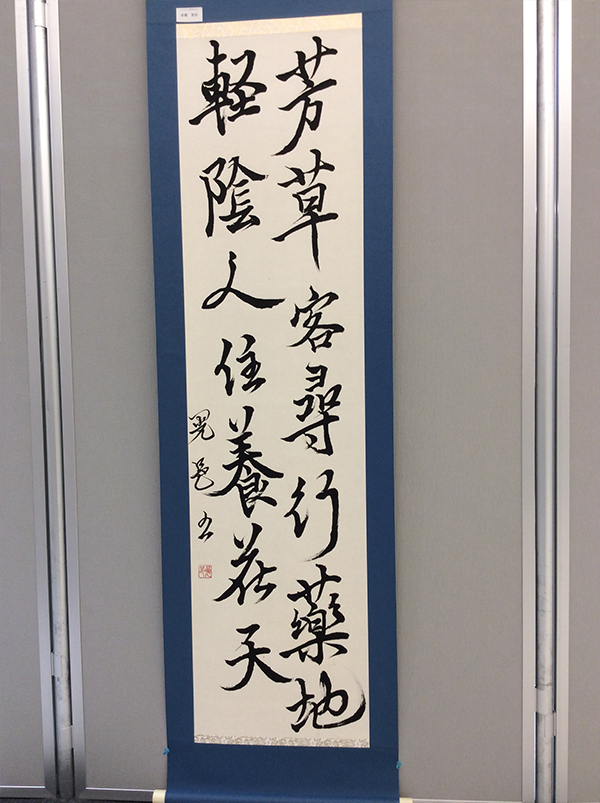 芳草客尋行藥地
軽陰人住養花天